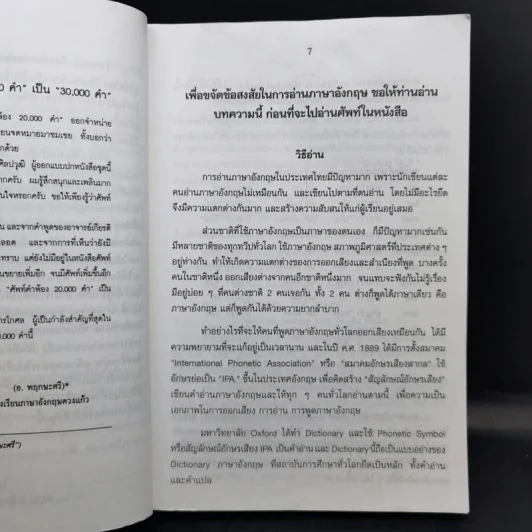 0 คำ" เป็น "30,000 คำ"
พ้อง 20,000 คำ" ออกจำหน่าย
ยนจดหมายมาชมเชย ทั้งบอกว่า
กด้วย
ศิลปวุฒิ ผู้ออกแบบปกหนังสือชุดนี้
ากครับ ผมรู้สึกสนุกและเพลินมาก
นใจหรอกครับ ขอให้เพียงรู้ว่าศัพท์
น และจากคำพูดของอาจารย์เกียรติ
ลอด และจากการที่เห็นว่ายังมี
ทราบ แต่ยังไม่มีอยู่ในหนังสือศัพท์
นขยายเพิ่มอีก จนมีศัพท์เพิ่มขึ้นอีก
"ศัพท์คำพ้อง 20,000 คำ" เป็น
รโกศล ผู้เป็นกำลังสำคัญที่สุดใน
0,000 คำนี้
(อ. พฤกษะศรี)*
งเรียนภาษาอังกฤษดวงแก้ว
ษะศรี")
7
เพื่อขจัดข้อสงสัยในการอ่านภาษาอังกฤษ ขอให้ท่านอ่าน
บทความนี้ ก่อนที่จะไปอ่านศัพท์ในหนังสือ
วิธีอ่าน
การอ่านภาษาอังกฤษในประเทศไทยมีปัญหามาก เพราะนักเขียนแต่ละ
คนอ่านภาษาอังกฤษไม่เหมือนกัน และเขียนไปตามที่ตนอ่าน โดยไม่มีอะไรยึด
จึงมีความแตกต่างกันมาก และสร้างความสับสนให้แก่ผู้เรียนอยู่เสมอ
ส่วนชาติที่ใช้ภาษาอังกฤษเป็นภาษาของตนเอง ก็มีปัญหามากเช่นกัน
มีหลายชาติของทุกทวีปทั่วโลก ใช้ภาษาอังกฤษ สภาพภูมิศาสตร์ที่ประเทศต่าง ๆ
อยู่ห่างกัน ทำให้เกิดความแตกต่างของการออกเสียงและสำเนียงที่พูด บางครั้ง
คนในชาติหนึ่ง ออกเสียงต่างจากคนอีกชาติหนึ่งมาก จนแทบจะฟังกันไม่รู้เรื่อง
มีอยู่บ่อย ๆ ที่คนต่างชาติ 2 คนเจอกัน ทั้ง 2 คน ต่างก็พูดได้ภาษาเดียว คือ
ภาษาอังกฤษ แต่ก็พูดกันได้ด้วยความยากลำบาก
ทำอย่างไรที่จะให้คนที่พูดภาษาอังกฤษทั่วโลกออกเสียงเหมือนกัน ได้มี
ความพยายามที่จะแก้อยู่เป็นเวลานาน และในปี ค.ศ. 1889 ได้มีการตั้งสมาคม
"International Phonetic Association" หรือ "สมาคมอักษรเสียงสากล" ใช้
อักษรย่อเป็น "IPA." ขึ้นในประเทศอังกฤษ เพื่อคิดสร้าง "สัญลักษณ์อักษรเสียง"
เขียนคำอ่านภาษาอังกฤษและให้ทุก ๆ คนทั่วโลกอ่านตามนี้ เพื่อความเป็น
เอกภาพในการออกเสียง การอ่าน การพูดภาษาอังกฤษ
มหาวิทยาลัย Oxford ได้ทำ Dictionary และใช้ Phonetic Symbol
หรือสัญลักษณ์อักษรเสียง IPA เป็นคำอ่าน และ Dictionary นี้ถือเป็นแบบอย่างของ
Dictionary ภาษาอังกฤษ ที่สถาบันการศึกษาทั่วโลกยึดเป็นหลัก ทั้งคำอ่าน
และคำแปล